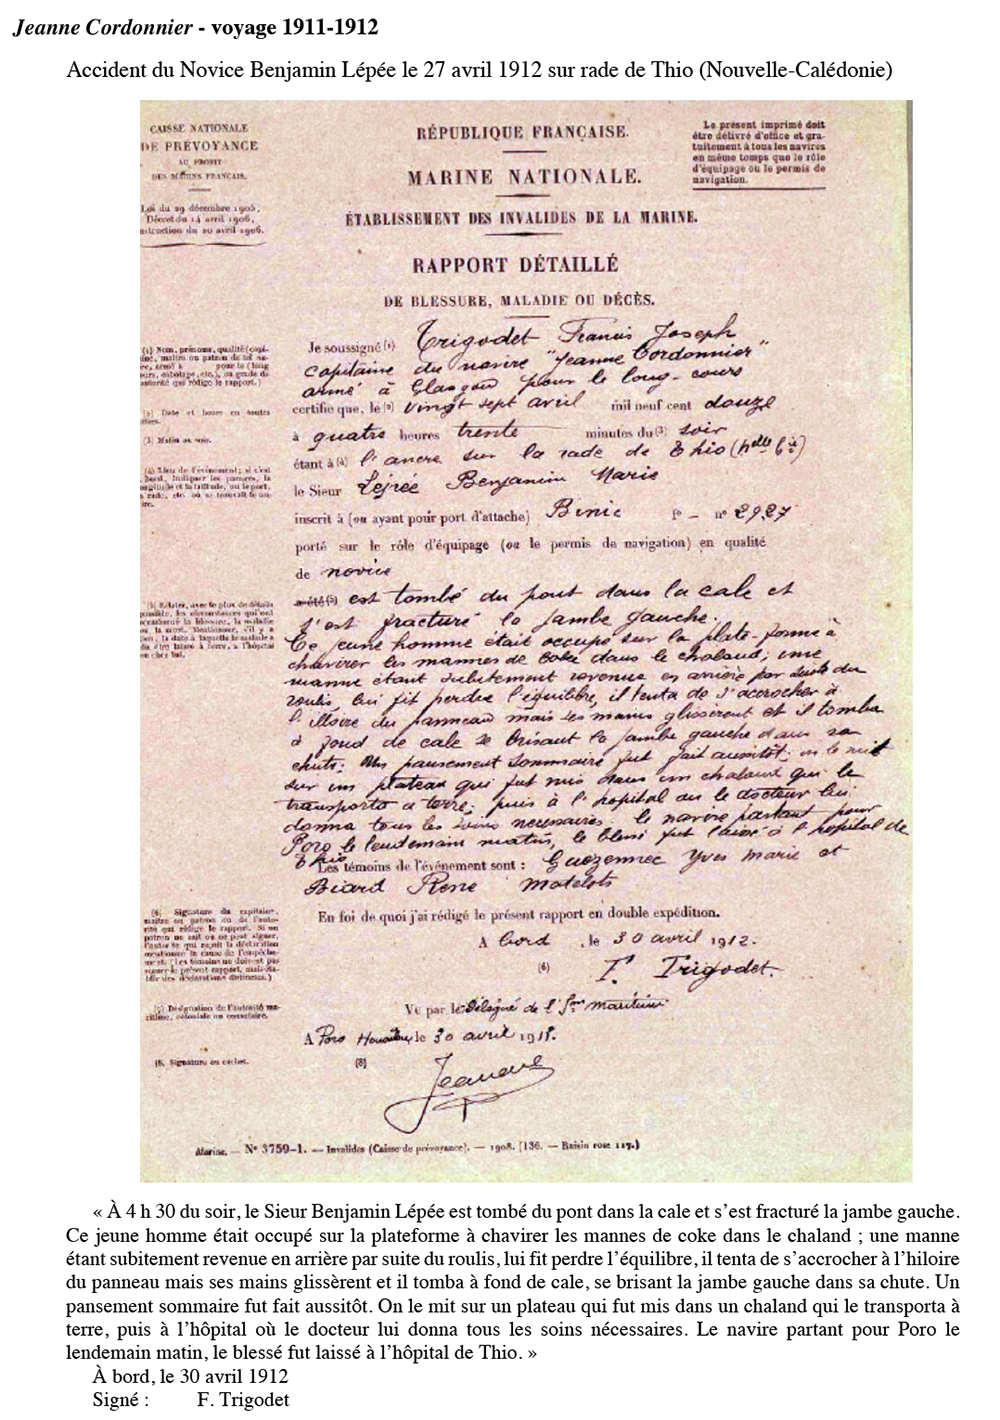 Jeanne Cordonnier - voyage 1911-1912
Accident du Novice Benjamin Lépée le 27 avril 1912 sur rade de Thio (Nouvelle-Calédonie)
CAISSE NATIONALE
DE PRÉVOYANCE
AU PROFIT
DES MARINS FRANÇAIS.
Loi du 29 décembre 1905,
Décret du 14 avril 1906,
Instruction du 20 avril 1906.
RÉPUBLIQUE FRANÇAISE.
MARINE NATIONALE.
ÉTABLISSEMENT DES INVALIDES DE LA MARINE.
Le présent imprimé doit
être délivré d'office et gra-
tuitement à tous les navires
en même temps que le rôle
d'équipage ou le permis de
navigation.
RAPPORT DÉTAILLÉ
DE BLESSURE, MALADIE OU DÉCÈS.
(1) Nom, prénoms, qualité (capi-
taine, maître ou patron de tel na-
vire, armé à pour le (long
cours, cabotage, etc.), ou grade de
autorité qui rédige le rapport.)
(2) Date et heure en toutes
lettres.
(3) Matin ou soir.
(4) Lieu de l'événement; si c'est
à bord, indiquer les parages, la
longitude et la latitude, ou le port,
la rade, etc. où se trouvait le na-
vire.
(5) Relater, avec le plus de détails
possible, les circonstances qui ont
occasionné la blessure, la maladie
ou la mort. Mentionner, s'il y a
lieu, la date à laquelle le malade a
dû être laissé à terre, à l'hôpital
ou chez lui.
Je soussigné (1) Trigodet Francis Joseph
capitaine du navire "Jeanne Cordonnier"
armé à Glasgow pour le long-cours
certifie que, le (2) vingt sept avril mil neuf cent douze
à quatre heures trente minutes du (3) soir
étant à (4) l'ancre sur la rade de Thio (Nelle Cie)
le Sieur Lépée Benjamin Marie
inscrit à (ou ayant pour port d'attache) Binic fo - no 2927
porté sur le rôle d'équipage (ou le permis de navigation) en qualité
de novice
a été (5) est tombé du pont dans la cale et
s'est fracturé la jambe gauche.
Ce jeune homme était occupé sur la plate-forme à
chavirer les mannes de coke dans le chaland; une
manne étant subitement revenue en arrière par suite du
roulis, lui fit perdre l'équilibre, il tenta de s'accrocher à
l'illoire du panneau mais ses mains glissèrent et il tomba
à fond de cale se brisant la jambe gauche dans sa
chute. Un pansement sommaire fut fait aussitôt. on le mit
sur un plateau qui fut mis dans un chaland qui le
transporta à terre; puis à l'hôpital ou le docteur lui
donna tous les soins nécessaires. le navire partant pour
Poro le lendemain matin, le blessé fut laissé à l'hôpital de
Thio
Les témoins de l'événement sont : Guézennec Yves Marie et
Biard René matelots
(6) Signature du capitaine,
maître ou patron ou de l'auto-
rité qui rédige le rapport. Si un
patron ne sait ou ne peut signer,
l'autorité qui reçoit la déclaration
mentionne la cause de l'empêche-
ment. (Les témoins ne doivent pas
signer le présent rapport, mais éta-
blir des déclarations distinctes.)
En foi de quoi j'ai rédigé le présent rapport en double expédition.
A bord, le 30 avril 1912.
(6) F. Trigodet.
(7) Désignation de l'autorité ma-
ritime, coloniale ou consulaire.
Vu par le Délégué de l'Ion maritime
A Poro Houaïlou, le 30 avril 1912.
(8) Signature ou cachet.
(8)
Marine. — No 3759-1. — Invalides (Caisse de prévoyance). — 1908. [136. — Raisin rose 117.)
« À 4 h 30 du soir, le Sieur Benjamin Lépée est tombé du pont dans la cale et s’est fracturé la jambe gauche.
Ce jeune homme était occupé sur la plateforme à chavirer les mannes de coke dans le chaland ; une manne
étant subitement revenue en arrière par suite du roulis, lui fit perdre l’équilibre, il tenta de s’accrocher à l’hiloire
du panneau mais ses mains glissèrent et il tomba à fond de cale, se brisant la jambe gauche dans sa chute. Un
pansement sommaire fut fait aussitôt. On le mit sur un plateau qui fut mis dans un chaland qui le transporta à
terre, puis à l’hôpital où le docteur lui donna tous les soins nécessaires. Le navire partant pour Poro le
lendemain matin, le blessé fut laissé à l’hôpital de Thio. »
À bord, le 30 avril 1912
Signé : F. Trigodet